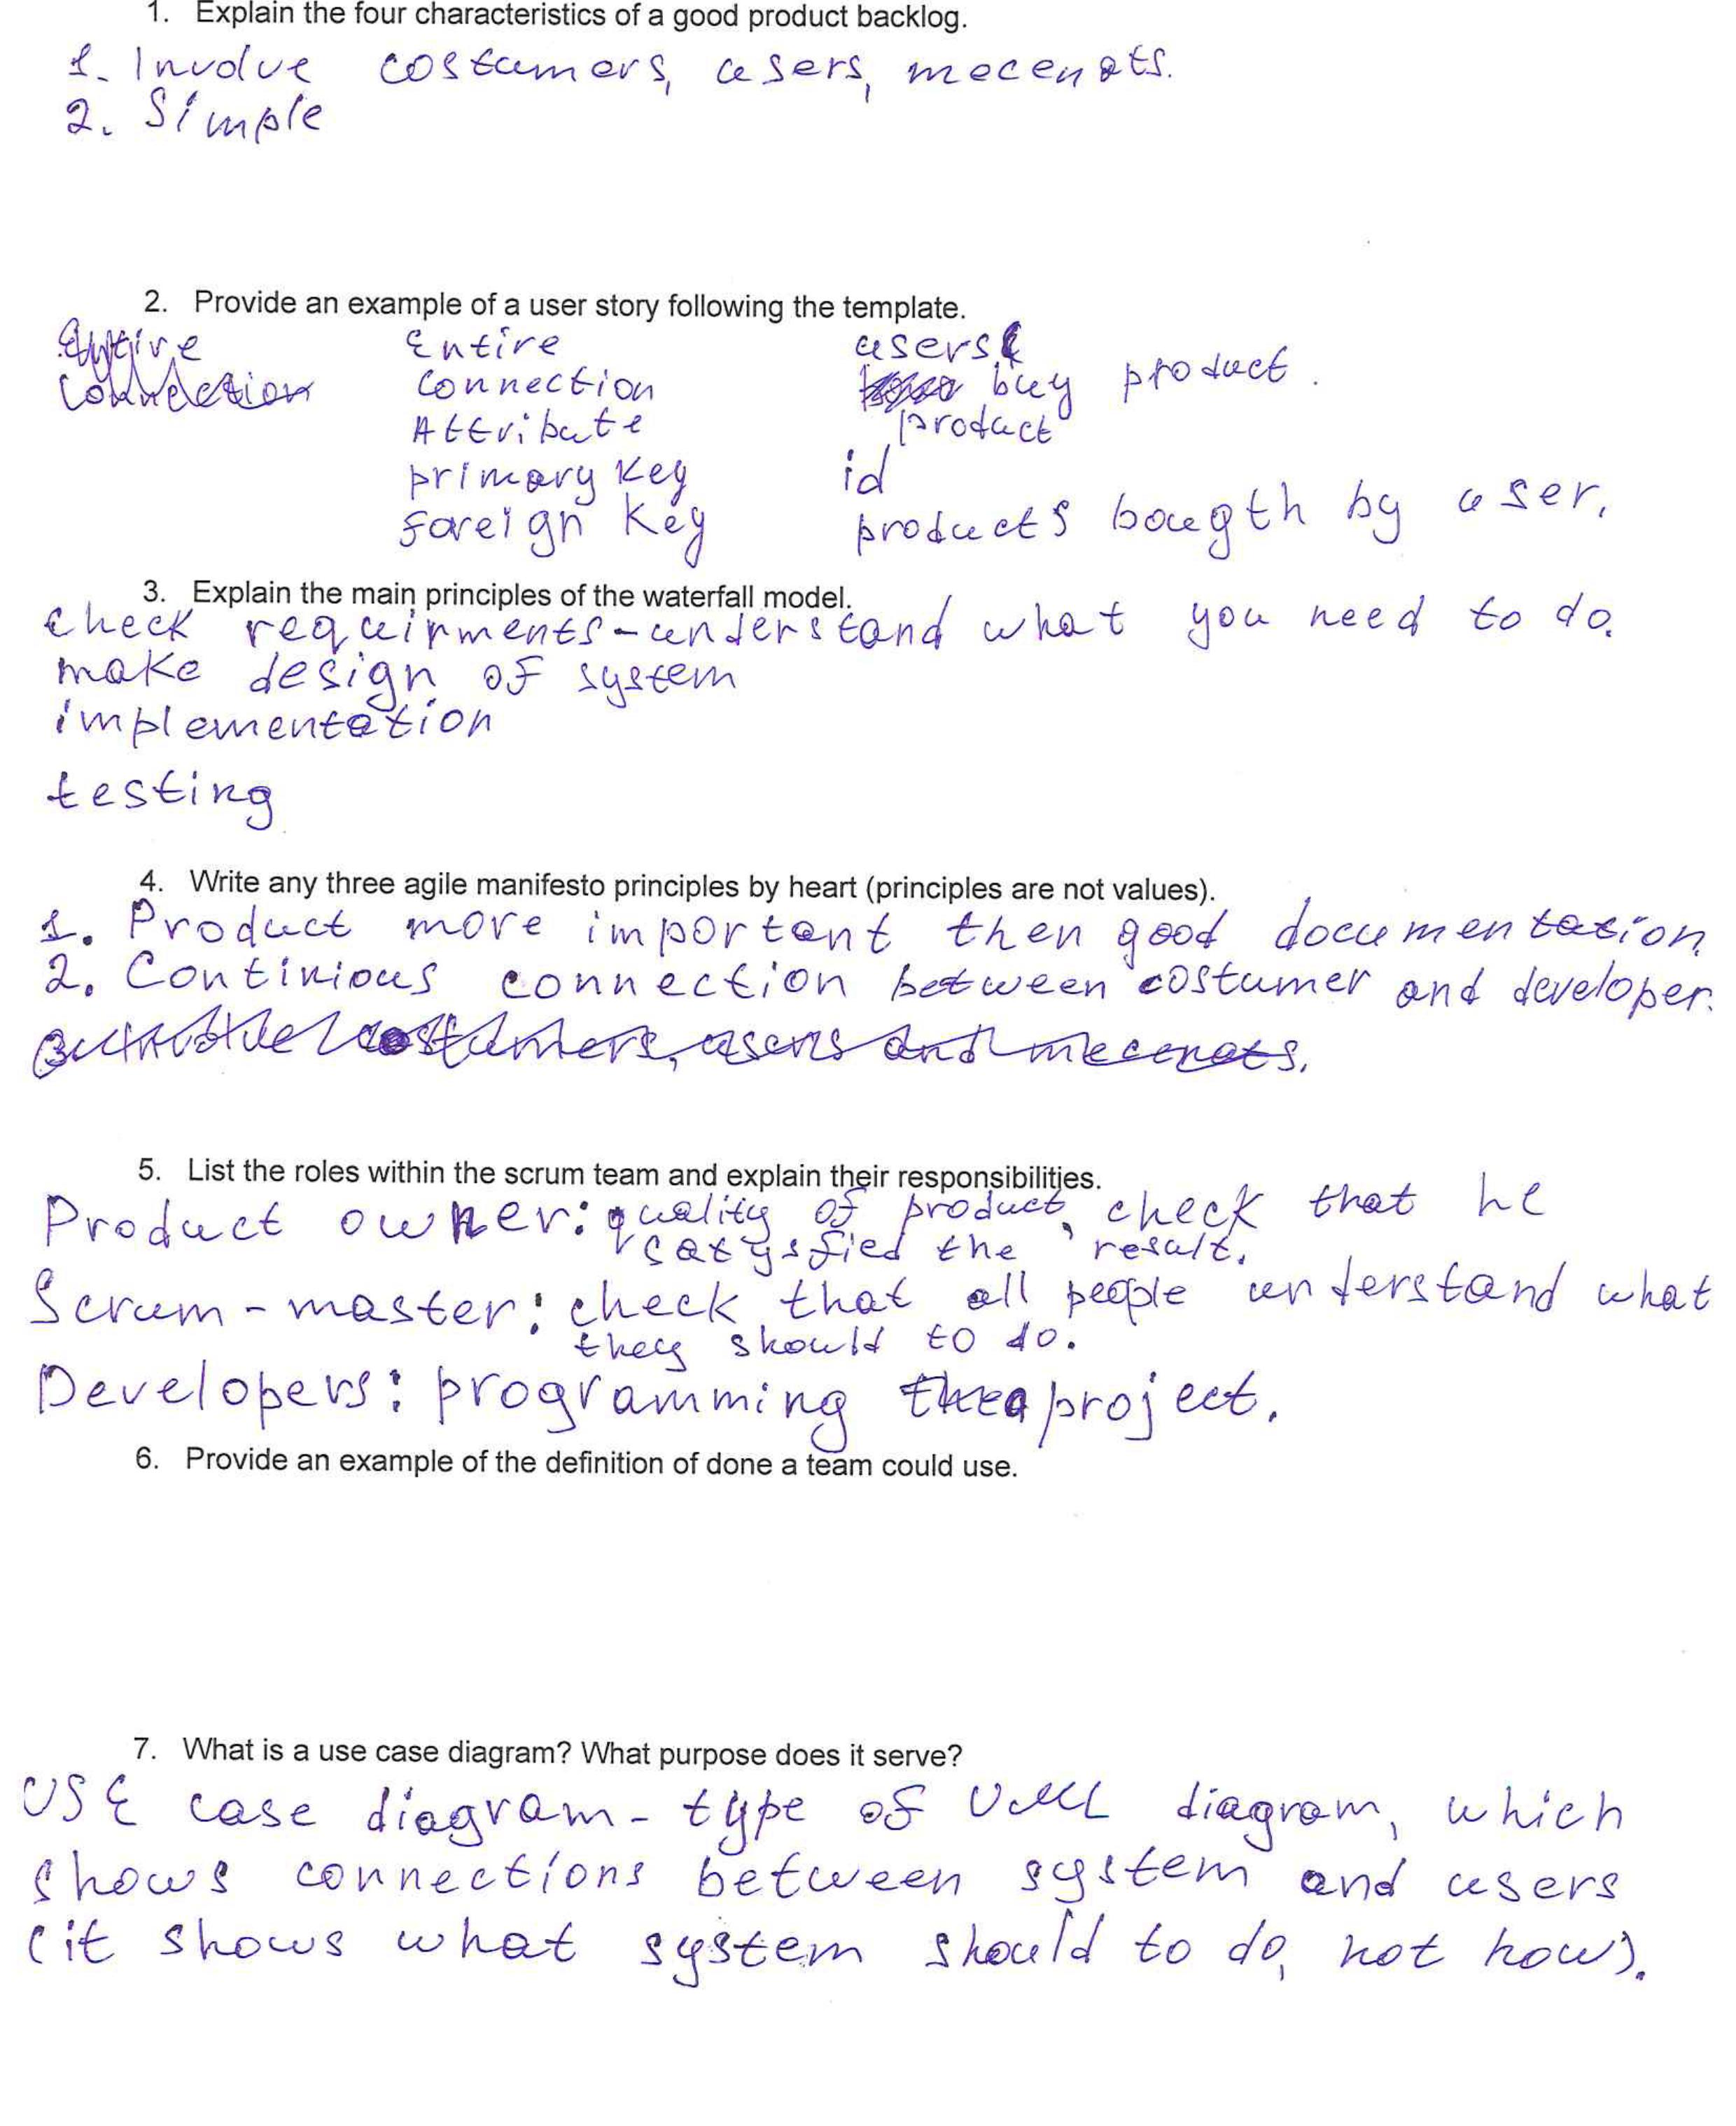 1. Explain the four characteristics of a good product backlog.
1. Involve costumers, users, mecenats.
2. Simple
2. Provide an example of a user story following the template.
Entire Entire users
Connection Connection buy product.
Attribute product
primary key id
Foreign key products bougth by user.
3. Explain the main principles of the waterfall model.
check requirments - understand what you need to do.
make design of system
implementation
testing
4. Write any three agile manifesto principles by heart (principles are not values).
1. Product more important then good documentation.
2. Continious connection between costumer and developer.
costumers, users and mecenats.
5. List the roles within the scrum team and explain their responsibilities.
Product owner: quality of product, check that he
satysfied the result.
Scrum-master: check that all people understand what
they should to do.
Developers: programming project.
6. Provide an example of the definition of done a team could use.
7. What is a use case diagram? What purpose does it serve?
USE case diagram - type of UML diagram, which
shows connections between system and users
(it shows what system should to do, not how).